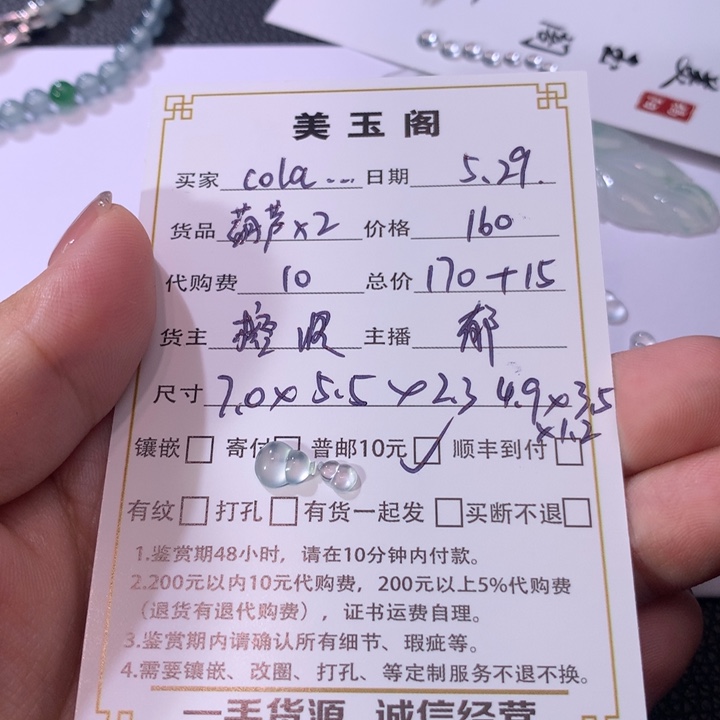 美玉阁
买家 cola... 日期 5.29.
货品 葫芦x2 价格 160
代购费 10 总价 170+15
货主 主播 郁
尺寸 7.0x5.5x2.3 4.9x3.5
x1.2
镶嵌 寄付 普邮10元 顺丰到付
有纹 打孔 有货一起发 买断不退
1.鉴赏期48小时，请在10分钟内付款。
2.200元以内10元代购费，200元以上5%代购费
（退货有退代购费），证书运费自理。
3.鉴赏期内请确认所有细节、瑕疵等。
4.需要镶嵌、改圈、打孔、等定制服务不退不换。
一手货源 诚信经营